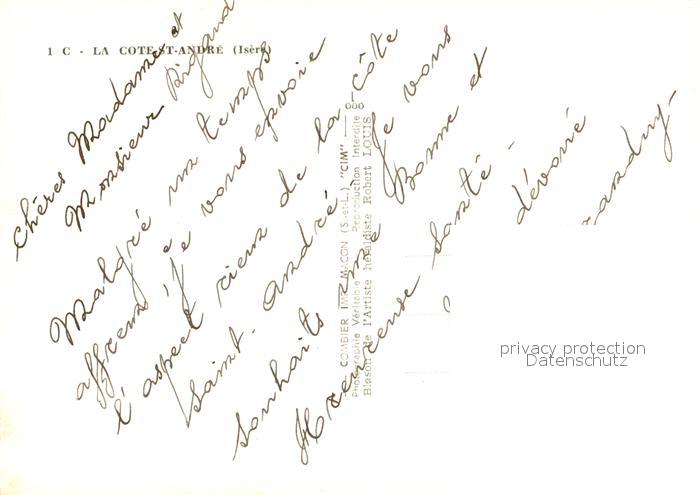 1 C - LA COTE-ST-ANDRÉ (Isère)
chères Madame et
Monsieur Rigaud
Malgré un temps
affreux je vous envoie
l'aspect riens de la Côte
Saint. André. Je vous
souhaite une Bonne et
Heureuse Santé -
dévoué
COMBIER IMP. MACON (S.-et-L.) "CIM"
Photographie Véritable Reproduction Interdite
Blason de l'Artiste héraldiste Robert LOUIS
privacy protection
Datenschutz